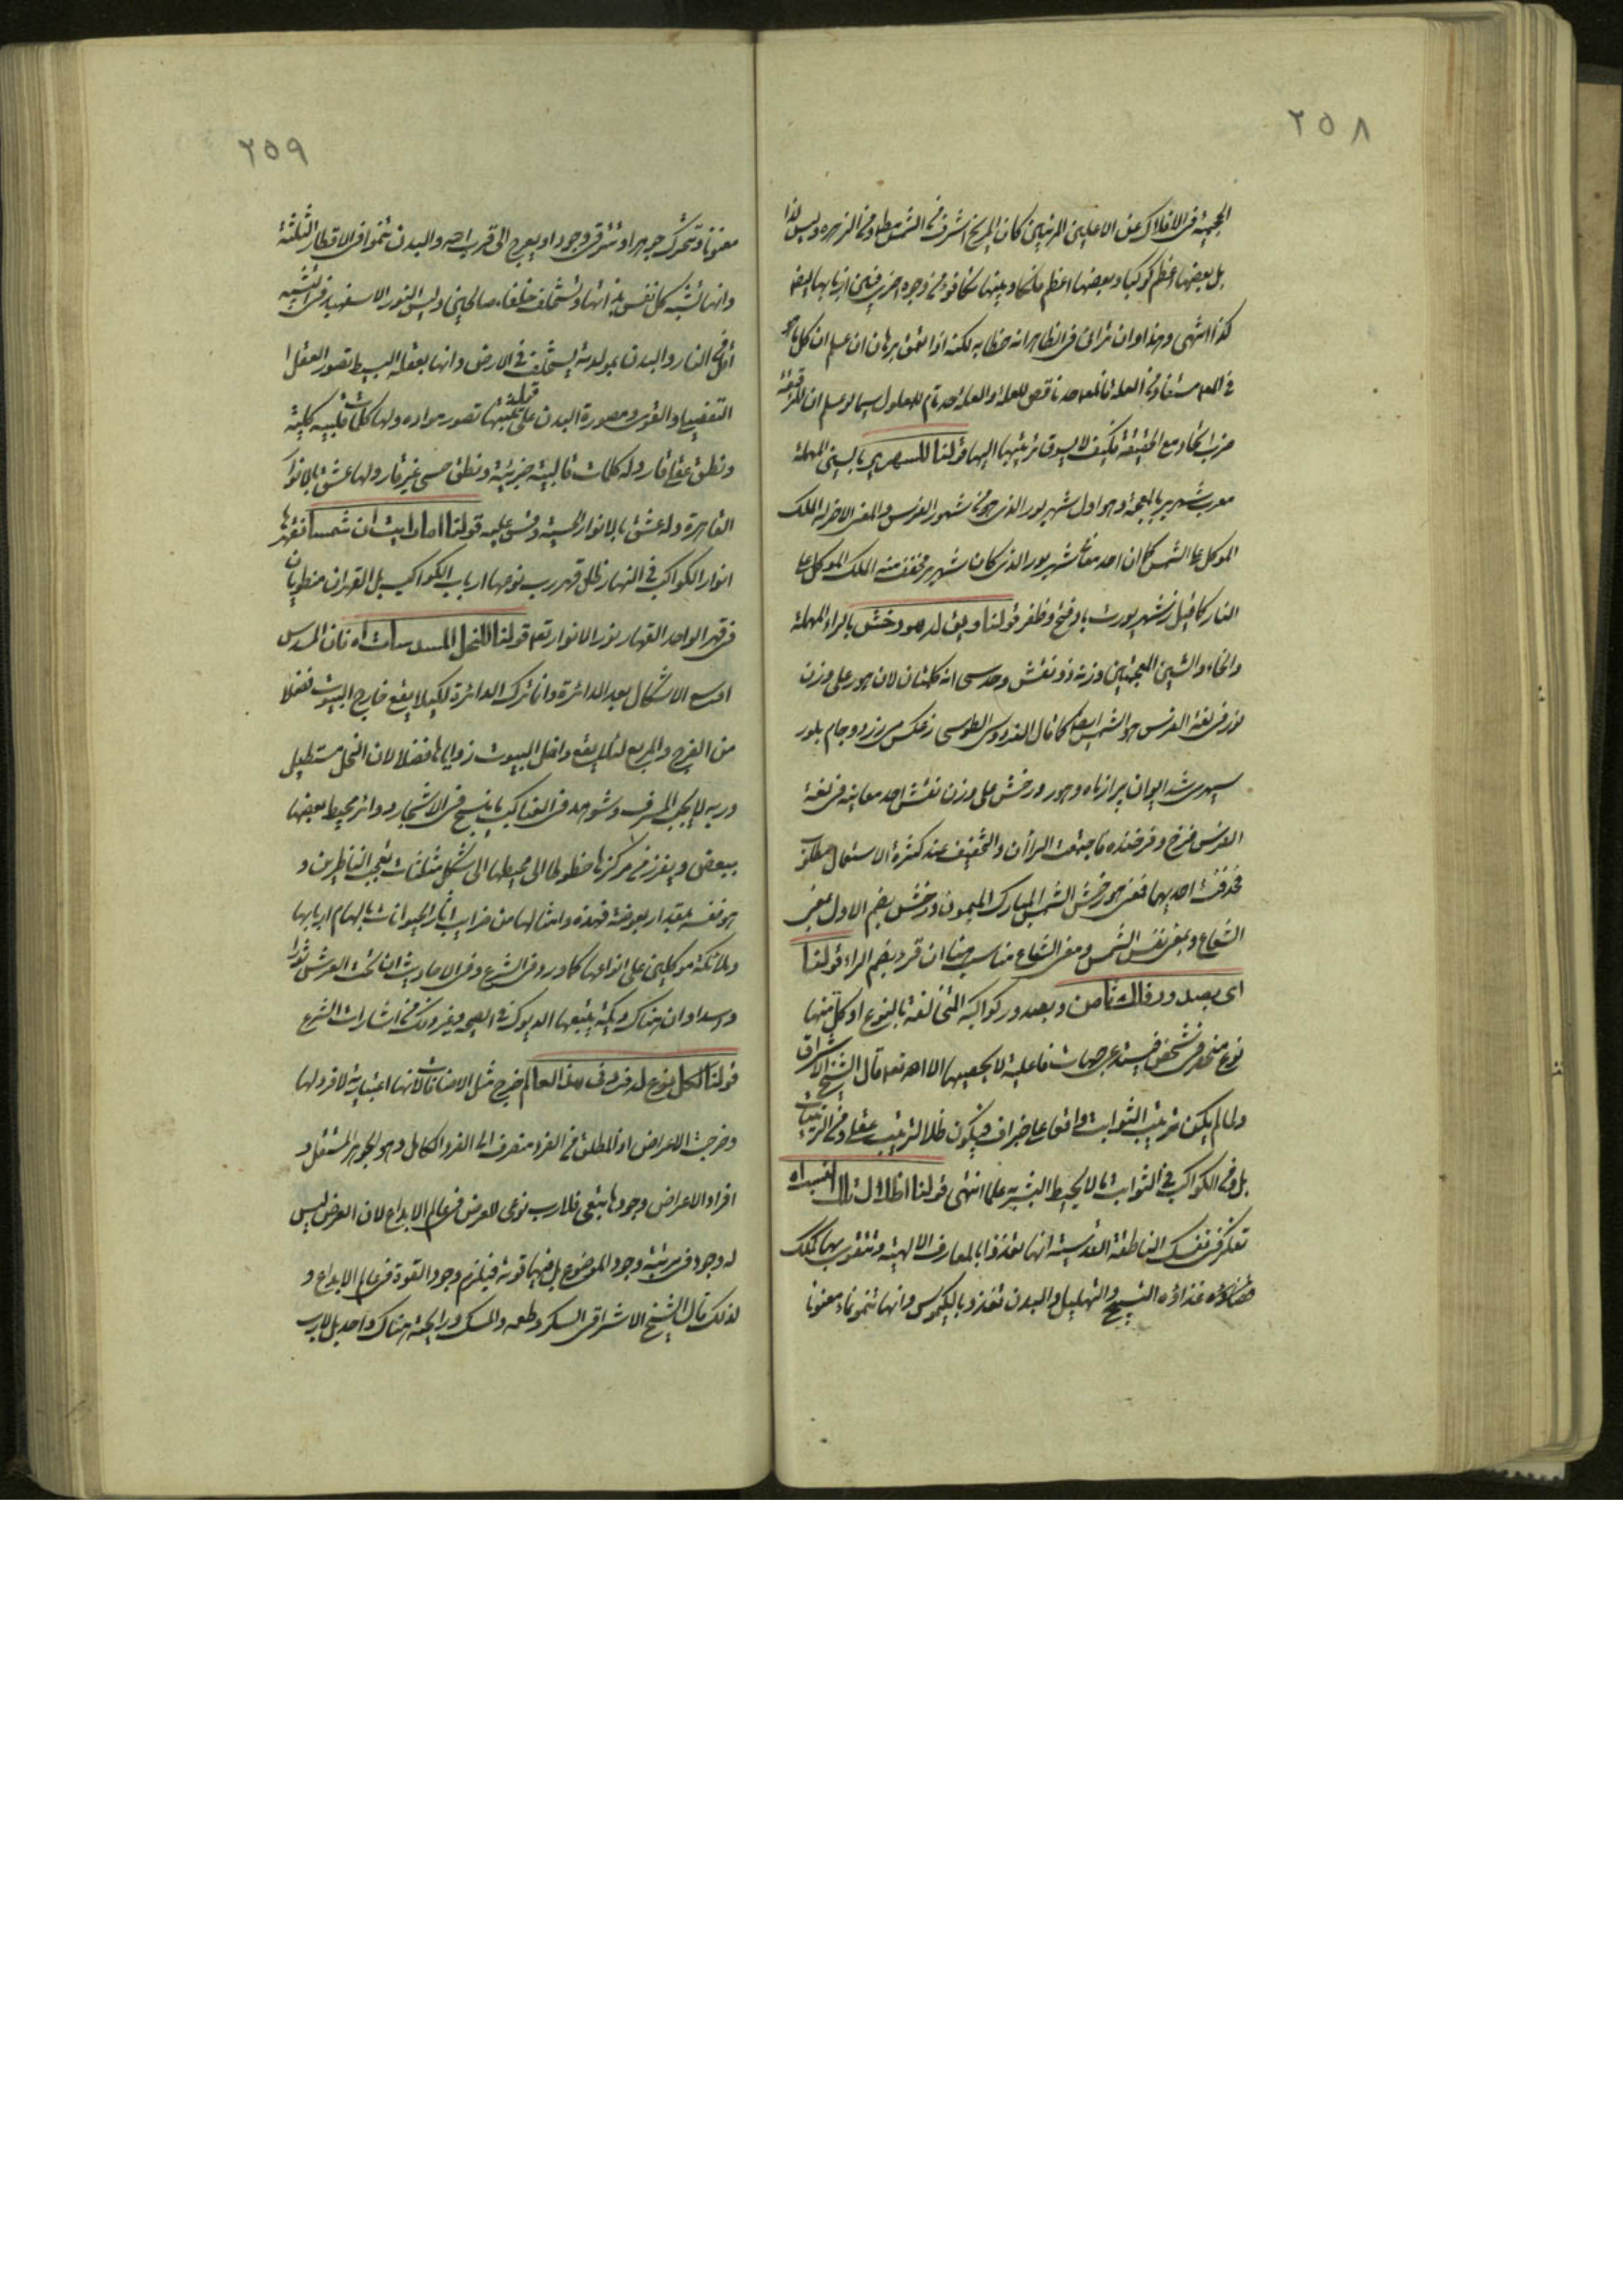 ٢٥٨
الجمية فی الافلاک عن الاعلین المرتبین کان المریخ اشرف من الشمس مطلقا ومن الزهره ولیس کذا
بل بعضها اعظم کوکبا وبعضها اعظم فلکا وبینها تکافؤ من وجوه اخری فبین اربابها ایضا
کذا انتهی وهذا وان ترائی فی الظاهر انه خطابه لکنه اذا تعمق برهان ان علم ان کل ما هو
فی المعلول مستفاد من العلة فالمعلول حد ناقص للعلة والعلة حد تام للمعلول سیما لو علم ان للرقیقة
ضرب اتحاد مع الحقیقة فکیف لا یسوق ترتیبها الیها قولنا للسهریر بالسین المهملة
معرب شهریر بالمعجمة وهو اول شهریور الذی هو من شهور الفرس والمعنی الاخر له الملک
الموکل علی الشمس کما ان احد معانی شهریور الذی کان شهریر مخفف منه الملک الموکل علی
النار کما قیل ز شهریورت باد فتح وظفر قولنا ویق له هورخش بالراء المهملة
والخاء والشین المعجمتین وزنه ذو نقش وحدسی انه کلمتان لان هور علی وزن
نور فی لغة الفرس هو الشمس ایضا کما قال الفردوسی الطوسی ز عکس می زرد وجام بلور
سپهری شد ایوان پر از ماه وهور ورخش علی وزن نقش احد معانیه فی لغة
الفرس فرخ وفرخنده فاجتمعت الراأن والتخفیف عند کثرة الاستعمال مطلوب
فحذفت احدیهما فمعنی هورخش الشمس المبارک المیمون ورخش بضم الاول بمعنی
الشعاع وبمعنی نفس الشمس ومعنی الشعاع مناسب هنا ان قرء بضم الراء قولنا
ای بصدور فلک ثامن وبصدور کواکبه المتخالفة بالنوع او کل منها
نوع منحصر فی شخص فیستدعی جهات فاعلیة لا یحصیها الا الله تعالی قال الشیخ الاشراقی
ولما لم یکن ترتیب الثوابت واقعا علی جزاف فیکون ظلا لترتیب عقلی ومن الترتیبات
بل ومن الکواکب فی الثوابت ما لا یحیط البشر به علما انتهی قولنا اظلال تلک النسب اه
تفکر فی نفسک الناطقة القدسیة انها تغذوا بالمعارف الالهیة وتتقوی بها کملک
غذاؤه التسبیح والتهلیل والبدن تغذو بالکیموس وانها تنمو نماء معنویا
٢٥٩
معنویا وتتحرک جوهرا وتترقی وجودا ویعرج الی قرب الله والبدن تنموا فی الاقطار الثلثة
وانها تشبه کل نفس بذاتها وتستخلف خلفاء صالحین ولیس النور الاسفهبد فی التشبیه
اقل من النار والبدن بمولدته یستخلف فی الارض وانها بعقله البسیط تصور العقل
التفصیلی والقوی ومصورة البدن علی قبلیتها تصور مواده ولها کلمات قلبیه کلیة
ونطق عقلی قار وله کلمات قالبیة جزئیة ونطق حسی غیر قار ولها عشق بالانوار
القاهرة وله عشق بالانوار الحسیة وقس علیه قولنا اما رایت ان شمسا تقهرها
انوار الکواکب فی النهار ظل قهر رب نوعها ارباب الکواکب بل القهران منطویان
فی قهر الواحد القهار نور الانوار تعالی قولنا للنحل المسدسات اه فان المسدس
اوسع الاشکال بعد الدائرة وانما ترک الدائرة لکیلا یقع خارج البیوت فضلا
من الفرج والمربع لئلا یقع داخل البیوت زوایاها فضلا لان النحل مستطیل
وربه لا یحب المسرف وشوهد فی العناکب ما ینسج فی الاشجار دوائر محیط بعضها
ببعض ویفرز من مرکزها خطوطا الی محیطها الی شکل مثلثات یعجب الناظرین و
هو نفسه بمقدار بعوضة فهذه وامثالها من غرایب افعال الحیوانات بالهام اربابها
وملائکة موکلین علی انواعها کما ورد فی الشرع وفی الاحادیث ان تحت العرش ثورا
واسدا وان هناک دیکة یتبعها الدیوک فی الصیحة وغیر ذلک من اشارات الشرع
قولنا لکل نوع له فرد فی هذا العالم خرج مثل الاضافات لانها اعتباریة لا فرد لها
وخرجت الاعراض اذ المطلق من الفرد منصرف الی الفرد الکامل وهو الجوهر المستقل و
افراد الاعراض وجودها تبعی فلا رب نوعی للعرض فی عالم الابداع لان العرض لیس
له وجود فی مرتبة وجود الموضوع بل فیها قوته فیلزم وجود القوة فی عالم الابداع و
لذلک قال الشیخ الاشراقی السکر وطعمه والمسک ورایحته هناک واحد بل لا رب